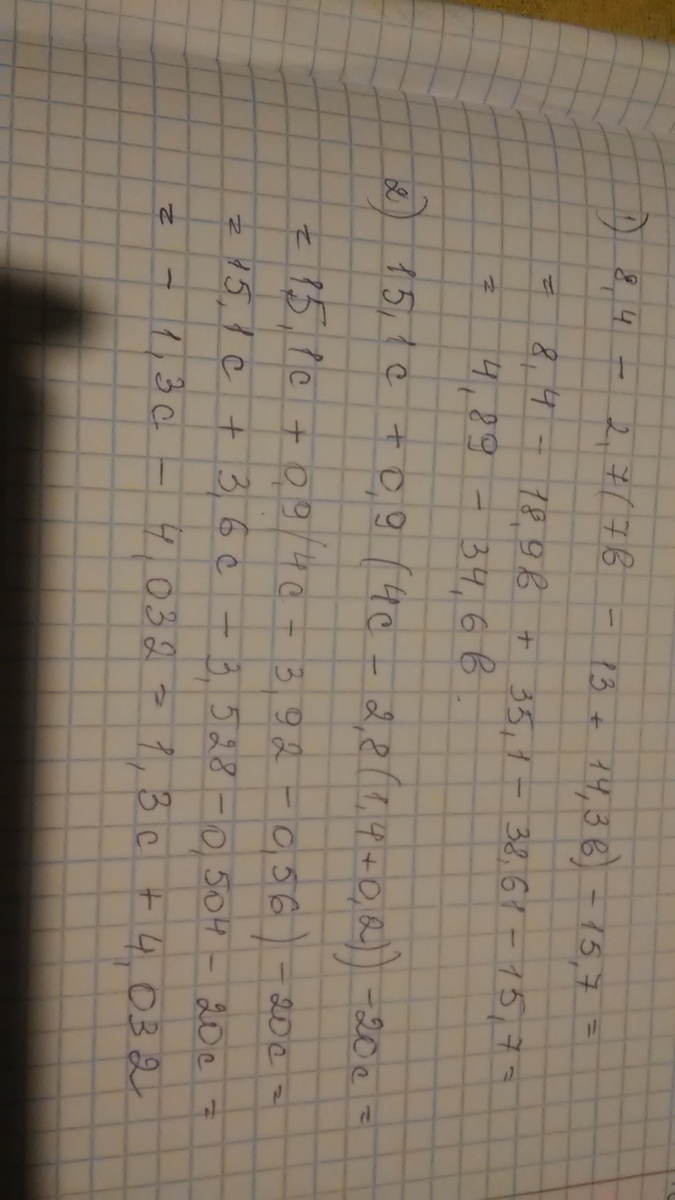 1) 8,4 - 2,7(7в - 13 + 14,3в) - 15,7 =
= 8,4 - 18,9в + 35,1 - 38,61 - 15,7 =
= 4,89 - 34,6в.
2) 15,1с + 0,9(4с - 2,8(1,4+0,2)) - 20с =
= 15,1с + 0,9(4с - 3,92 - 0,56) - 20с =
= 15,1с + 3,6с - 3,528 - 0,504 - 20с =
= - 1,3с - 4,032 = 1,3с + 4,032